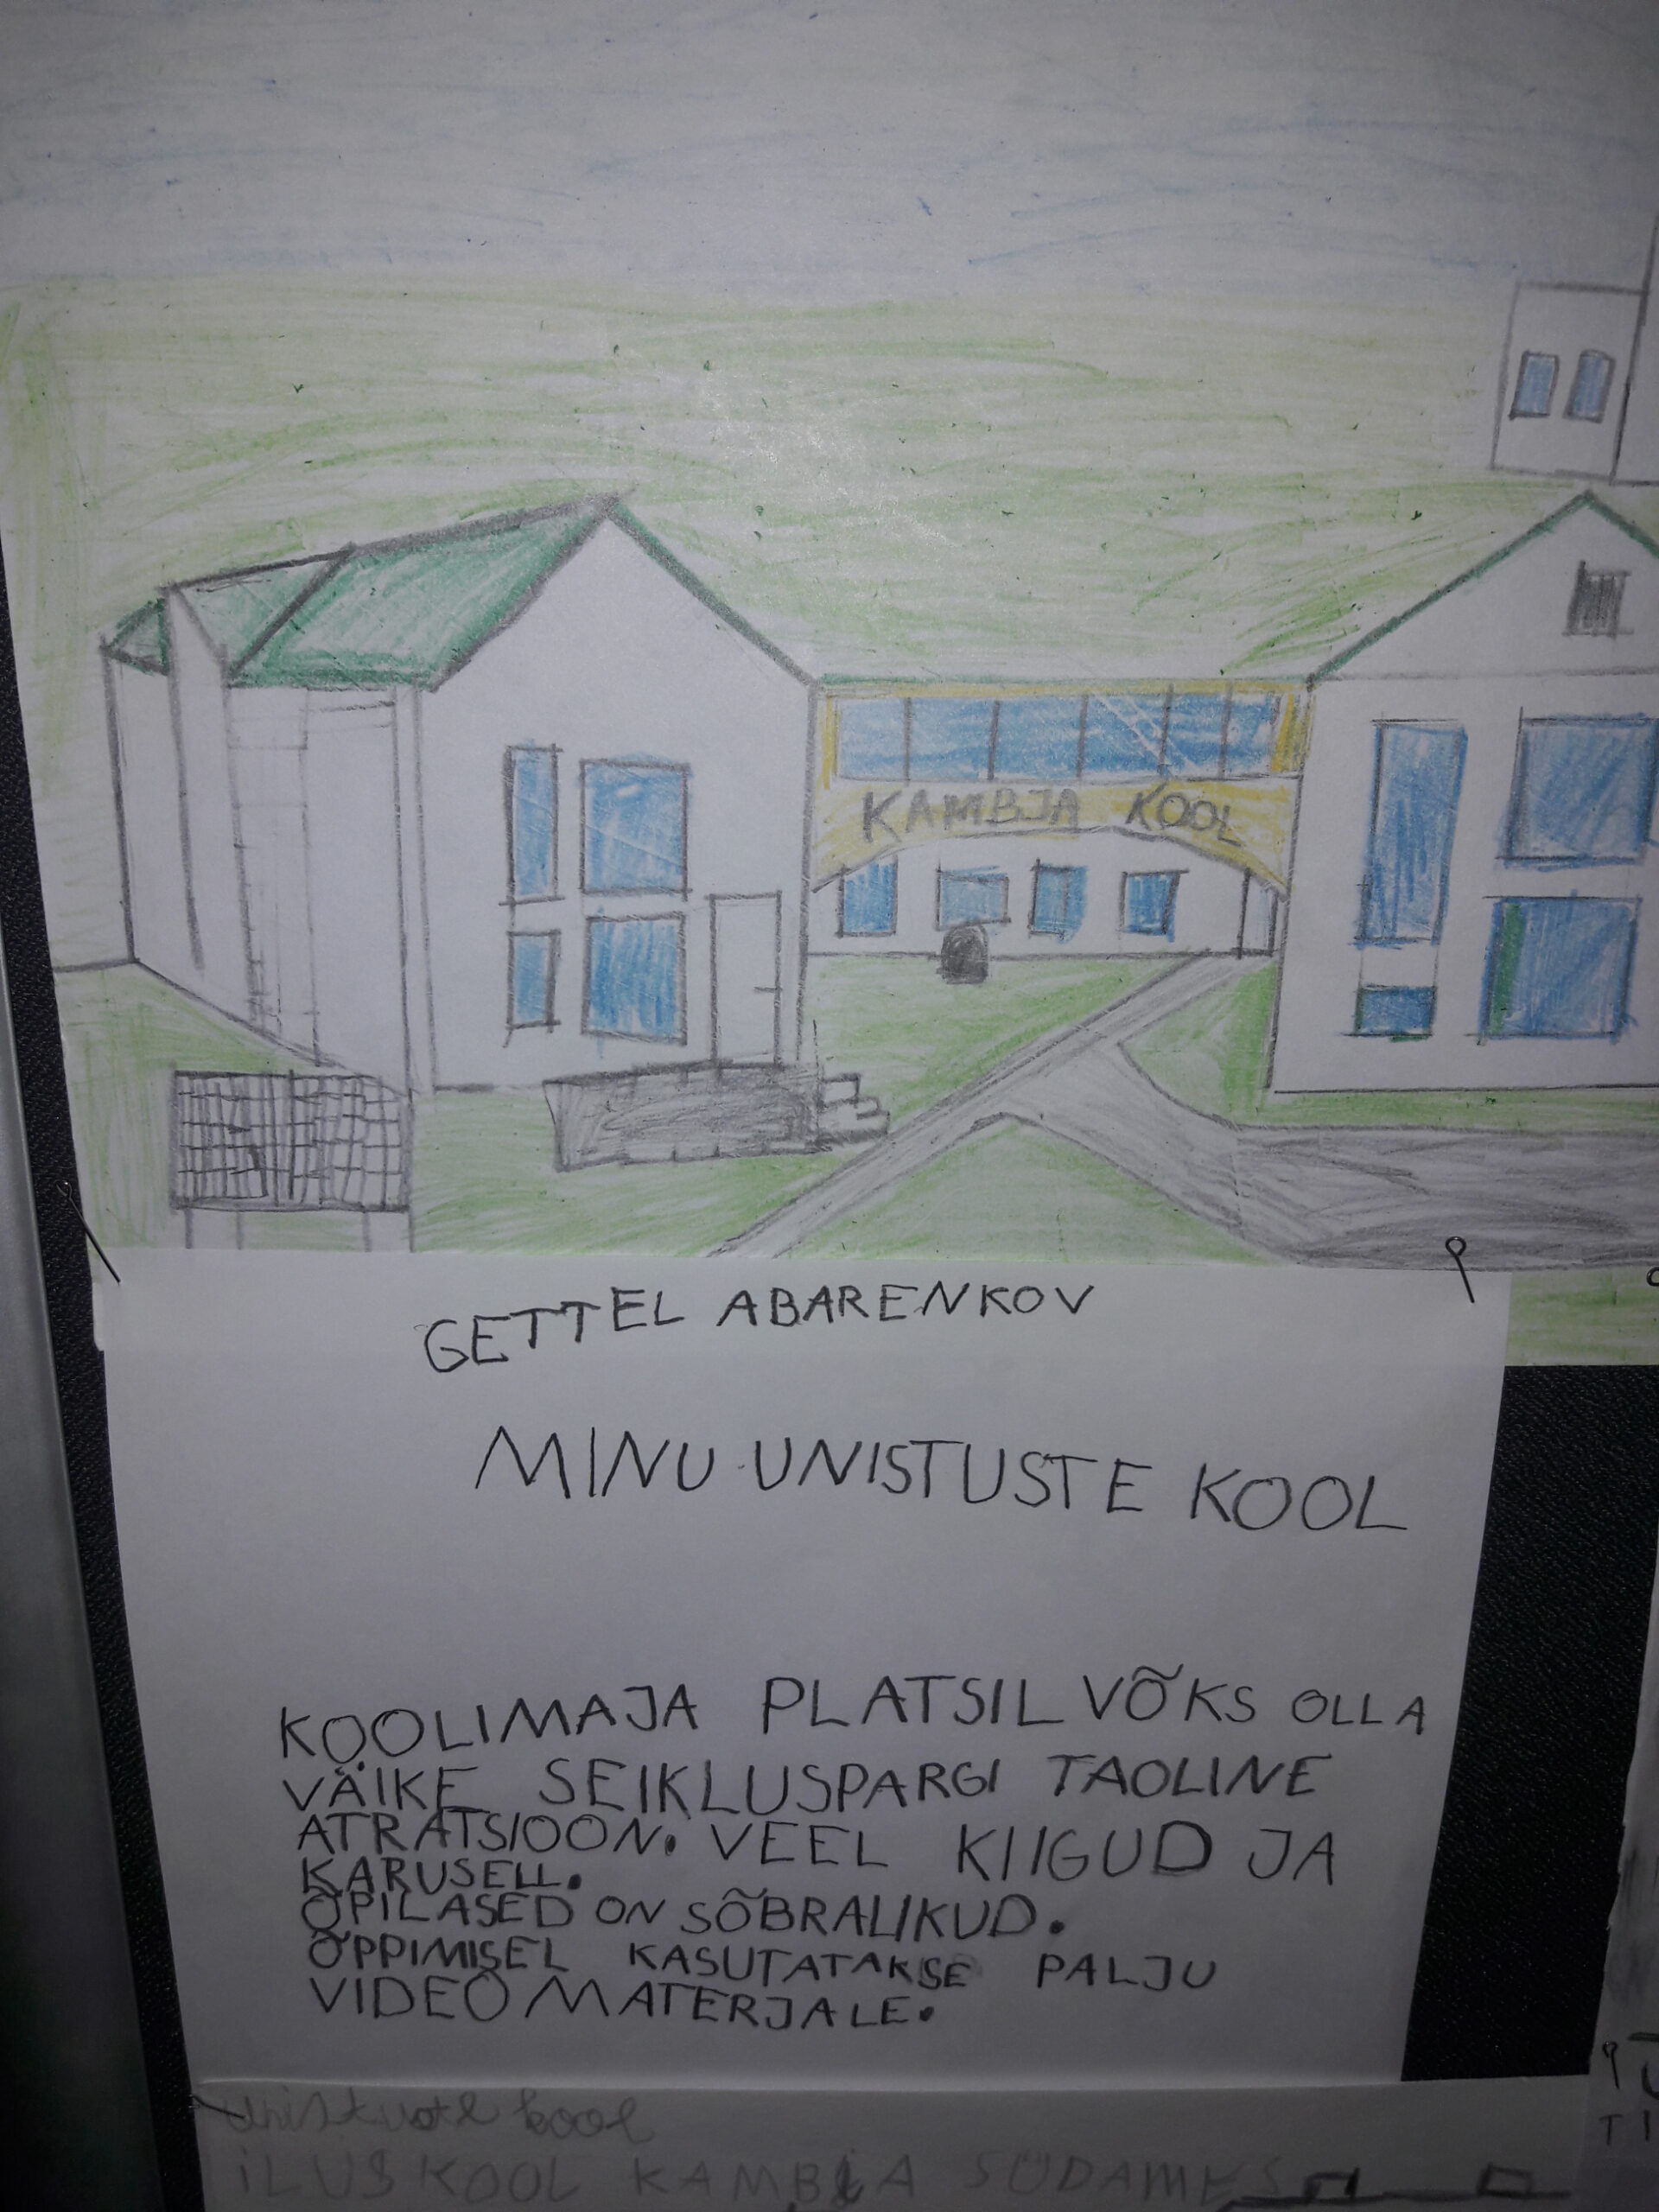 KAMBJA KOOL
GETTEL ABARENKOV
MINU UNISTUSTE KOOL
KOOLIMAJA PLATSIL VÕKS OLLA
VÄIKE SEIKLUSPARGI TAOLINE
ATRATSIOON. VEEL KIIGUD JA
KARUSELL.
ÕPILASED ON SÕBRALIKUD.
ÕPPIMISEL KASUTATAKSE PALJU
VIDEO MATERJALE.
unistuste kool
ILUS KOOL KAMBJA SÜDAMES